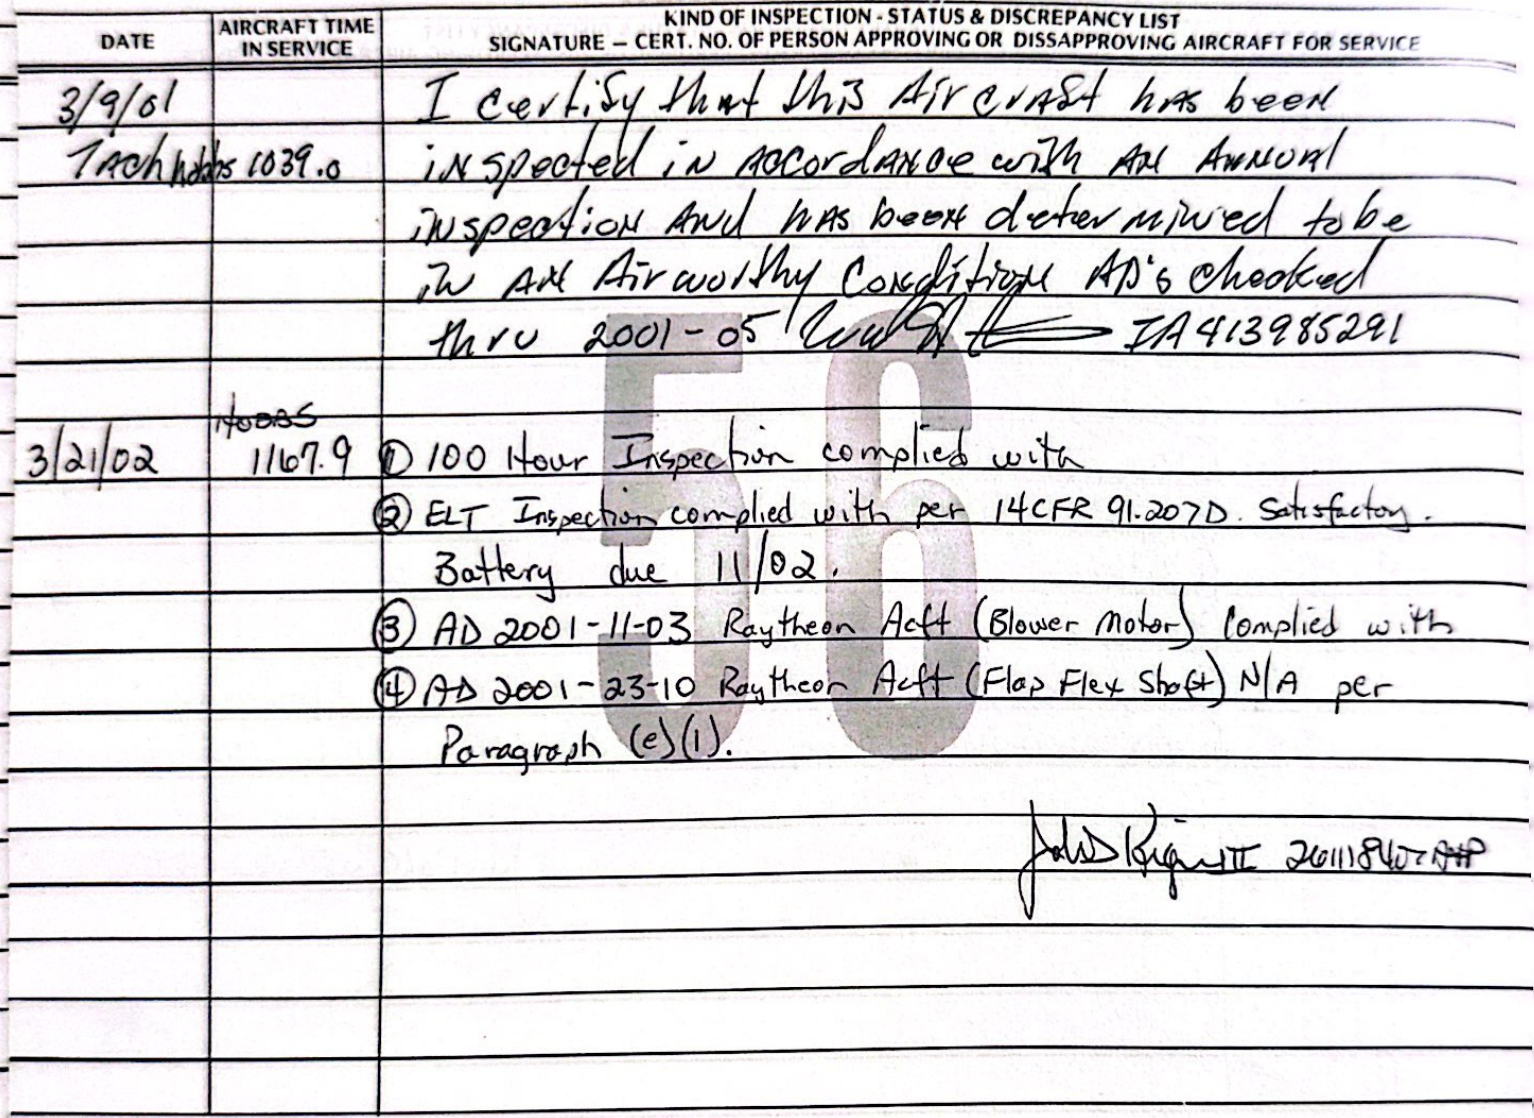 DATE
AIRCRAFT TIME
IN SERVICE
KIND OF INSPECTION - STATUS & DISCREPANCY LIST
SIGNATURE – CERT. NO. OF PERSON APPROVING OR DISSAPPROVING AIRCRAFT FOR SERVICE
3/9/01 I certify that this Aircraft has been
Tach hobbs 1039.0 inspected in Accordance with AN Annual
inspection And has been determined to be
in AN Airworthy Condition AD's checked
thru 2001-05 IA 413985291
HOBBS
3/21/02 1167.9 ① 100 Hour Inspection complied with
② ELT Inspection complied with per 14CFR 91.207D. Satisfactory.
Battery due 11/02.
③ AD 2001-11-03 Raytheon Acft (Blower Motor) Complied with
④ AD 2001-23-10 Raytheon Acft (Flap Flex Shaft) N/A per
Paragraph (e)(1).
56